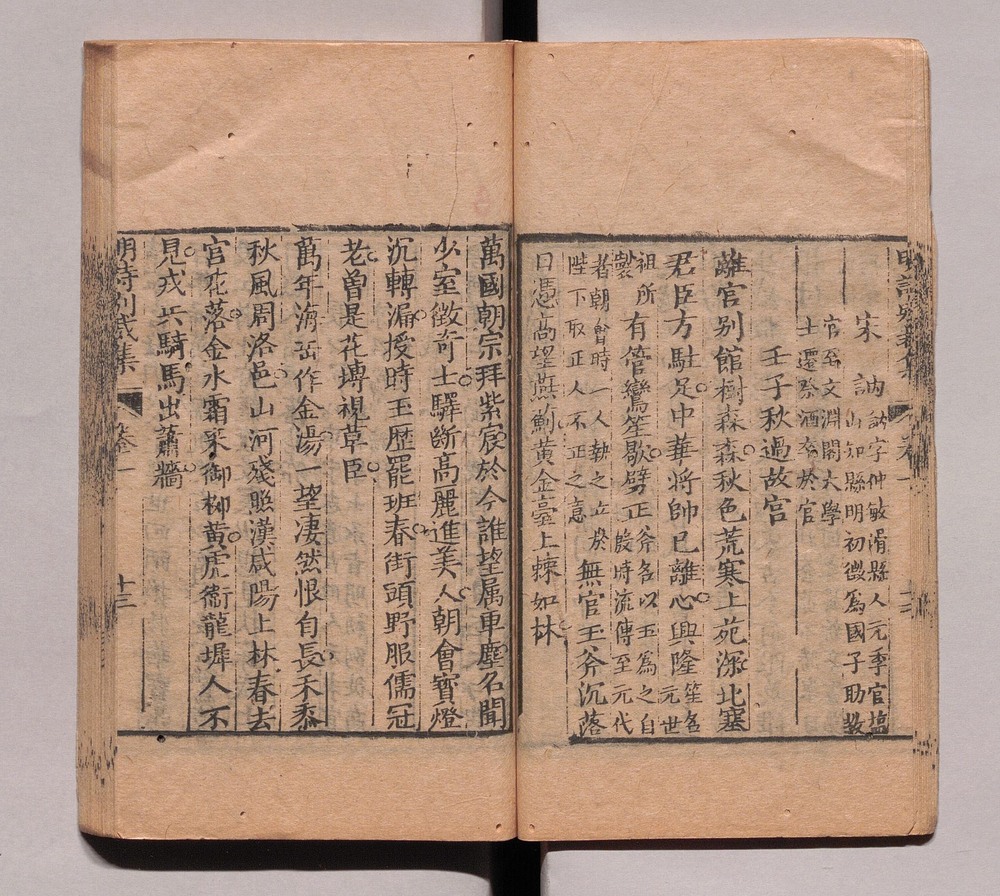 宋訥
訥字仲敏滑縣人元季官塩
山知縣明初徵為國子助敎
官至文淵閣大學
士遷祭酒卒於官
壬子秋過故宫
離宫别館樹森森秋色荒寒上苑深北塞
君臣方駐足中華將帥已離心興隆笙名元世
祖所製有管鸞笙歇劈正斧各以玉為之自殷時流傳至元代
者朝會時一人執之立於陛下取正人不正之意無官玉斧沉落
日憑高望燕薊黃金臺上棘如林
萬國朝宗拜紫宸於今誰望属車塵名聞
少室徵竒士驛斷高麗進美人朝會寳燈
沉轉漏授時玉歷罷班春街頭野服儒冠
老曾是花塼視草臣
萬年海岳作金湯一望凄然恨自長禾黍
秋風周洛邑山河殘照漢咸陽上林春去
宫花落金水霜來御柳黄虎衞龍墀人不
見戎兵騎馬出蕭牆
明詩别裁集 卷一 十三